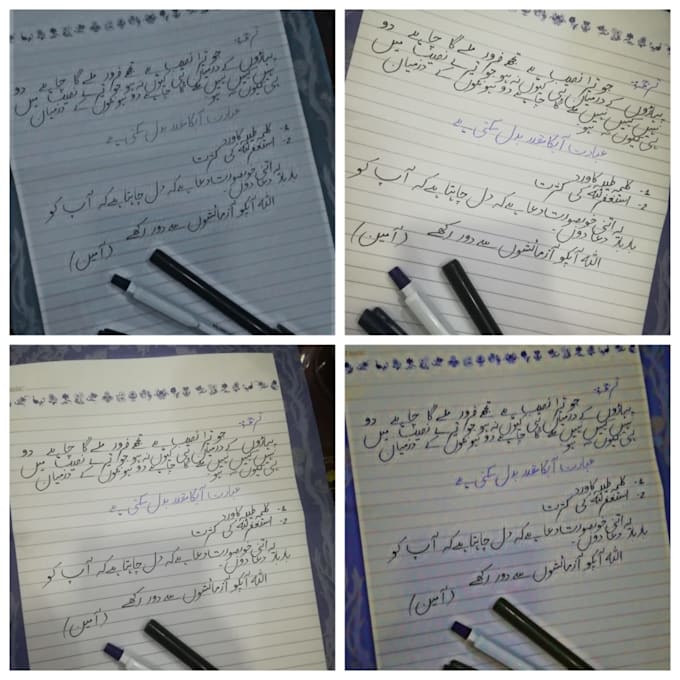 ترجمہ:
جو تیرا نصیب ہے تجھے ضرور ملے گا چاہے دو
پہاڑوں کے درمیان ہی کیوں نہ ہو جو تیرے نصیب میں
نہیں کہیں نہیں ملے گا چاہے دو ہونٹوں کے درمیان
ہی کیوں نہ ہو
عبادت آپکا مقدر بدل سکتی ہے
1. کلمہ طیبہ کا ورد
2. استغفراللہ کی کثرت
یہ اتنی خوبصورت دعا ہے کہ دل چاہتا ہے کہ آپ کو
بار بار دعا دوں۔
اللہ آپکو آزمائشوں سے دور رکھے (آمین)
ترجمہ:
جو تیرا نصیب ہے تجھے ضرور ملے گا چاہے دو
پہاڑوں کے درمیان ہی کیوں نہ ہو جو تیرے نصیب میں
نہیں کہیں نہیں ملے گا چاہے دو ہونٹوں کے درمیان
ہی کیوں نہ ہو
عبادت آپکا مقدر بدل سکتی ہے
1. کلمہ طیبہ کا ورد
2. استغفراللہ کی کثرت
یہ اتنی خوبصورت دعا ہے کہ دل چاہتا ہے کہ آپ کو
بار بار دعا دوں۔
اللہ آپکو آزمائشوں سے دور رکھے (آمین)
ترجمہ:
جو تیرا نصیب ہے تجھے ضرور ملے گا چاہے دو
پہاڑوں کے درمیان ہی کیوں نہ ہو جو تیرے نصیب میں
نہیں کہیں نہیں ملے گا چاہے دو ہونٹوں کے درمیان
ہی کیوں نہ ہو
عبادت آپکا مقدر بدل سکتی ہے
1. کلمہ طیبہ کا ورد
2. استغفراللہ کی کثرت
یہ اتنی خوبصورت دعا ہے کہ دل چاہتا ہے کہ آپ کو
بار بار دعا دوں۔
اللہ آپکو آزمائشوں سے دور رکھے (آمین)
ترجمہ:
جو تیرا نصیب ہے تجھے ضرور ملے گا چاہے دو
پہاڑوں کے درمیان ہی کیوں نہ ہو جو تیرے نصیب میں
نہیں کہیں نہیں ملے گا چاہے دو ہونٹوں کے درمیان
ہی کیوں نہ ہو
عبادت آپکا مقدر بدل سکتی ہے
1. کلمہ طیبہ کا ورد
2. استغفراللہ کی کثرت
یہ اتنی خوبصورت دعا ہے کہ دل چاہتا ہے کہ آپ کو
بار بار دعا دوں۔
اللہ آپکو آزمائشوں سے دور رکھے (آمین)